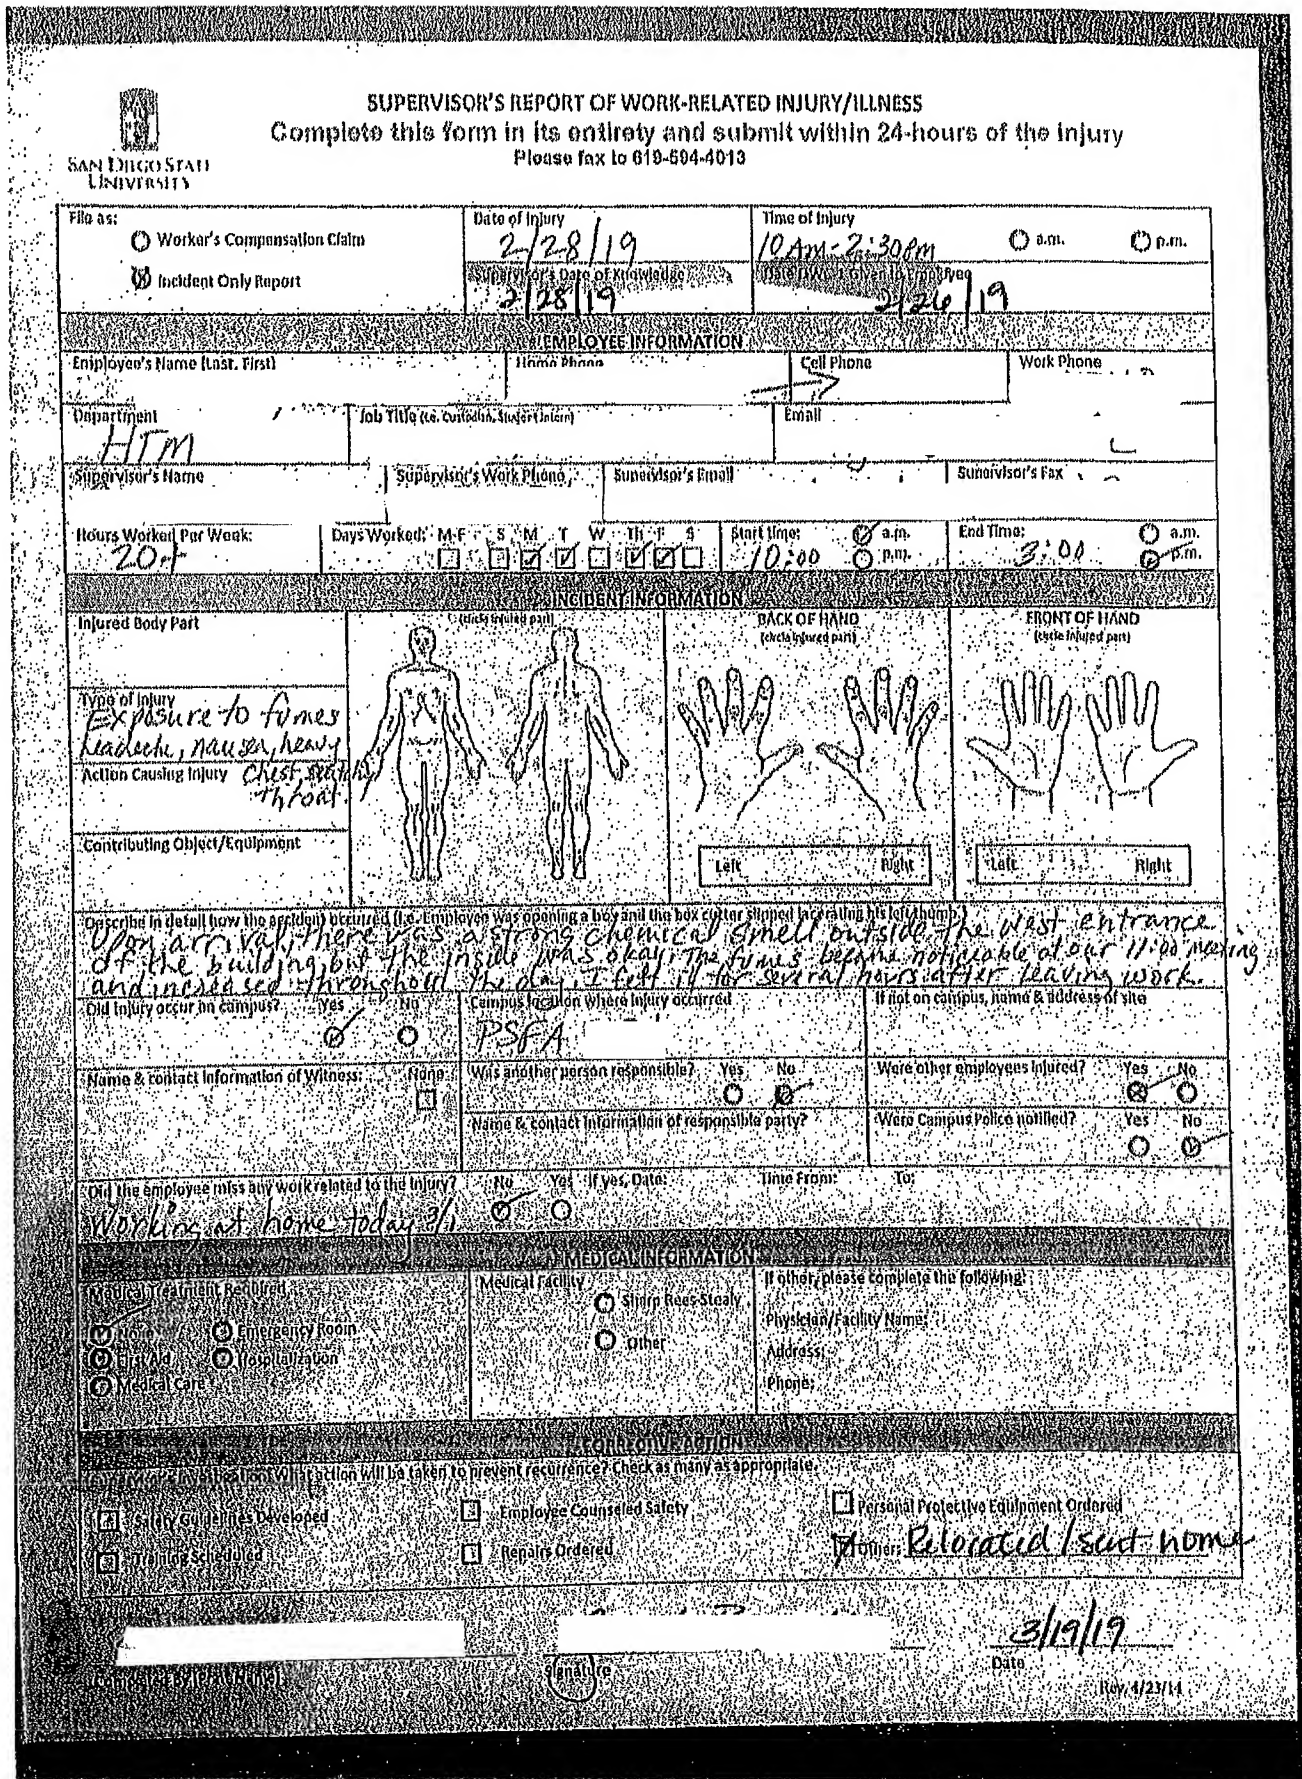 SAN DIEGO STATE
UNIVERSITY
SUPERVISOR'S REPORT OF WORK-RELATED INJURY/ILLNESS
Complete this form in its entirety and submit within 24-hours of the injury
Please fax to 619-594-4013
File as:
Worker's Compensation Claim
Incident Only Report
Date of Injury
2/28/19
Time of Injury
10 AM - 2:30 pm a.m. p.m.
Supervisor's Date of Knowledge
2/28/19
Given to Employee
2/26/19
EMPLOYEE INFORMATION
Employee's Name (Last, First) Home Phone Cell Phone Work Phone
Department Job Title (i.e. Custodian, Student Intern) Email
HTM
Supervisor's Name Supervisor's Work Phone Supervisor's Email Supervisor's Fax
Hours Worked Per Week: Days Worked: M-F S M T W Th F S Start time: a.m. End Time: a.m.
20+ 10:00 p.m. 3:00 p.m.
INCIDENT INFORMATION
Injured Body Part
(circle injured part)
BACK OF HAND
(circle injured part)
FRONT OF HAND
(circle injured part)
Type of Injury
Exposure to fumes
headache, nausea, heavy
Action Causing Injury chest, scratchy
throat.
Contributing Object/Equipment
Left Right
Left Right
Describe in detail how the accident occurred (i.e. Employee was opening a box and the box cutter slipped lacerating his left thumb.)
Upon arrival, there was a strong chemical smell outside the west entrance
of the building, but the inside was okay. The fumes became noticeable at our 11:00 meeting
and increased throughout the day. I felt it for several hours after leaving work.
Did injury occur on campus? Yes No
Campus location where injury occurred
PSFA
If not on campus, name & address of site
Name & contact information of Witness: None
Was another person responsible? Yes No
Were other employees injured? Yes No
Name & contact information of responsible party?
Were Campus Police notified? Yes No
Did the employee miss any work related to the injury? No Yes If yes, Date: Time From: To:
Working at home today 3/1
MEDICAL INFORMATION
Medical Treatment Required
None Emergency Room
First Aid Hospitalization
Medical Care
Medical Facility
Sharp Rees-Stealy
Other
If other, please complete the following:
Physician/Facility Name:
Address:
Phone:
CORRECTIVE ACTION
What action will be taken to prevent recurrence? Check as many as appropriate.
Safety Guidelines Developed Employee Counseled Safety Personal Protective Equipment Ordered
Training Scheduled Repairs Ordered Other: Relocated / sent home
3/19/19
Completed by (Print Name) Signature Date
Rev. 4/23/14